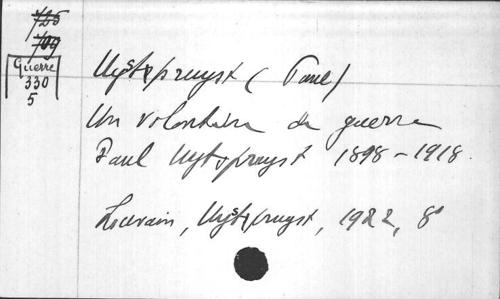 725
709
Guerre
330
5
Uystpruyst (Paul)
Un volontaire de guerre
Paul Uytspruyst 1898-1918.
Louvain, Uystpruyst, 1922, 8°